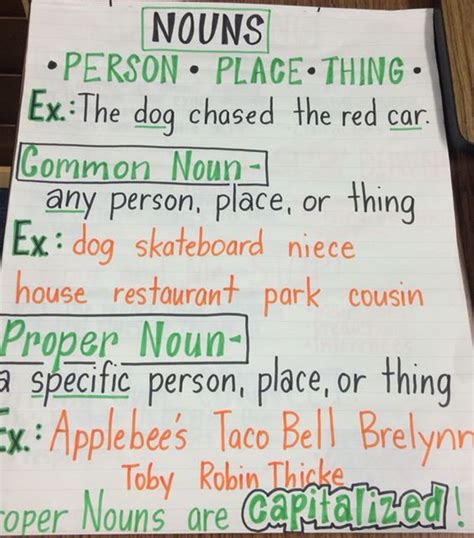 NOUNS
• PERSON • PLACE • THING •
Ex.: The dog chased the red car.
Common Noun-
any person, place, or thing
Ex.: dog skateboard niece
house restaurant park cousin
Proper Noun-
a specific person, place, or thing
Ex.: Applebee's Taco Bell Brelynn
Toby Robin Thicke
roper Nouns are capitalized!